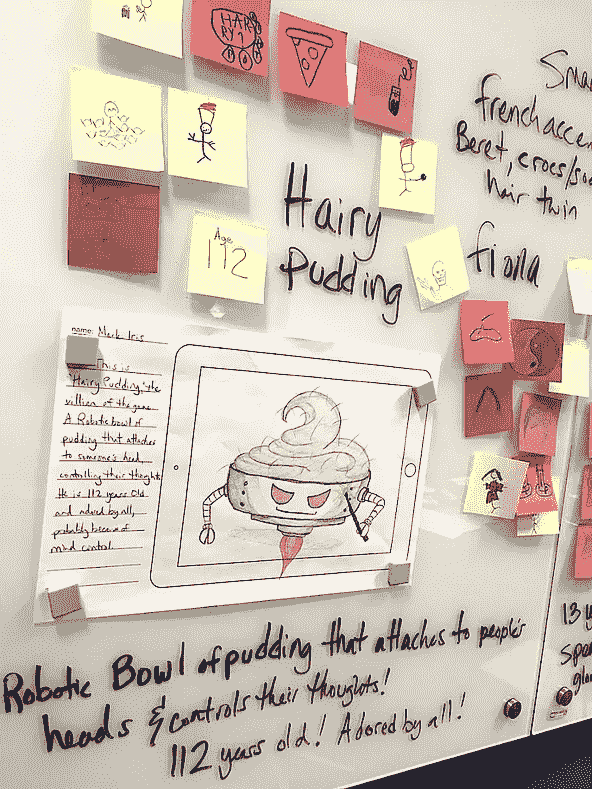 HAR
RY?
Age
112
Hairy
Pudding
french
Beret, crocs/
hair twin
fiona
name: Mark Iris
This is
"Hairy Pudding," the
villien of the game.
A Robotic bowl of
pudding that attaches
to someone's head,
controlling their thoughts.
He is 112 years old
and adored by all,
probably because of
mind control.
Robotic Bowl of pudding that attaches to people's
heads & controls their thoughts!
112 years old! Adored by all!
13